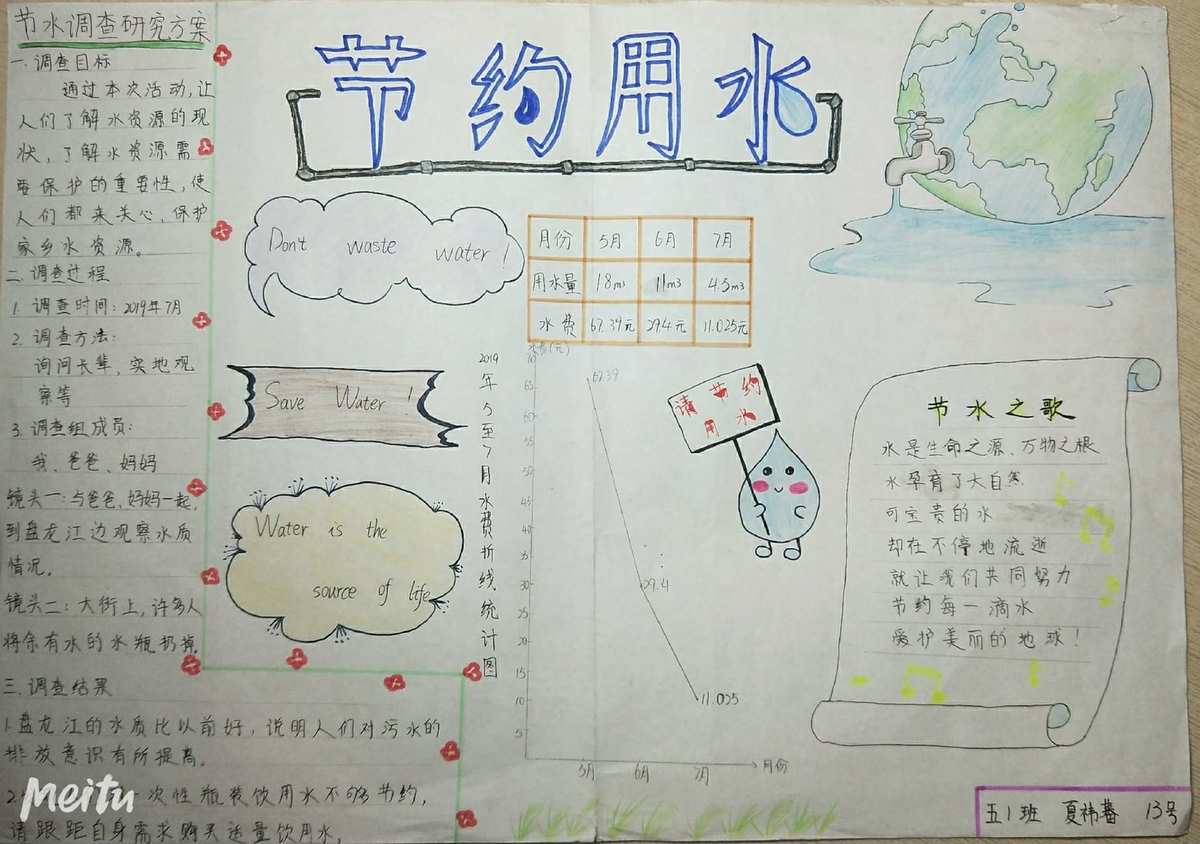 节水调查研究方案
一.调查目标
通过本次活动,让
人们了解水资源的现
状,了解水资源需
要保护的重要性,使
人们都来关心,保护
家乡水资源。
二.调查过程
1.调查时间:2019年7月
2.调查方法:
询问长辈,实地观
察等
3.调查组成员:
我、爸爸、妈妈
镜头一:与爸爸,妈妈一起,
到盘龙江边观察水质
情况。
镜头二:大街上,许多人
将余有水的水瓶扔掉,
三.调查结果
1.盘龙江的水质比以前好,说明人们对污水的
排放意识有所提高。
2.
次性瓶装饮用水不够节约,
请跟距自身需求购买适量饮用水,
Meitu
节约用水
Don't waste water!
Save Water!
Water is the
source of life
月份 5月 6月 7月
用水量 18m3 11m3 4.5m3
水费 67.39元 29.4元 11.025元
2019年5至7月水费折线统计图
水费(元)
70
65
60
55
50
45
40
35
30
25
20
15
10
5
67.39
29.4
11.025
5月 6月 7月 月份
请节约
用水
节水之歌
水是生命之源、万物之根
水孕育了大自然
可宝贵的水
却在不停地流逝
就让我们共同努力
节约每一滴水
爱护美丽的地球!
五1班 夏祎蕃 13号